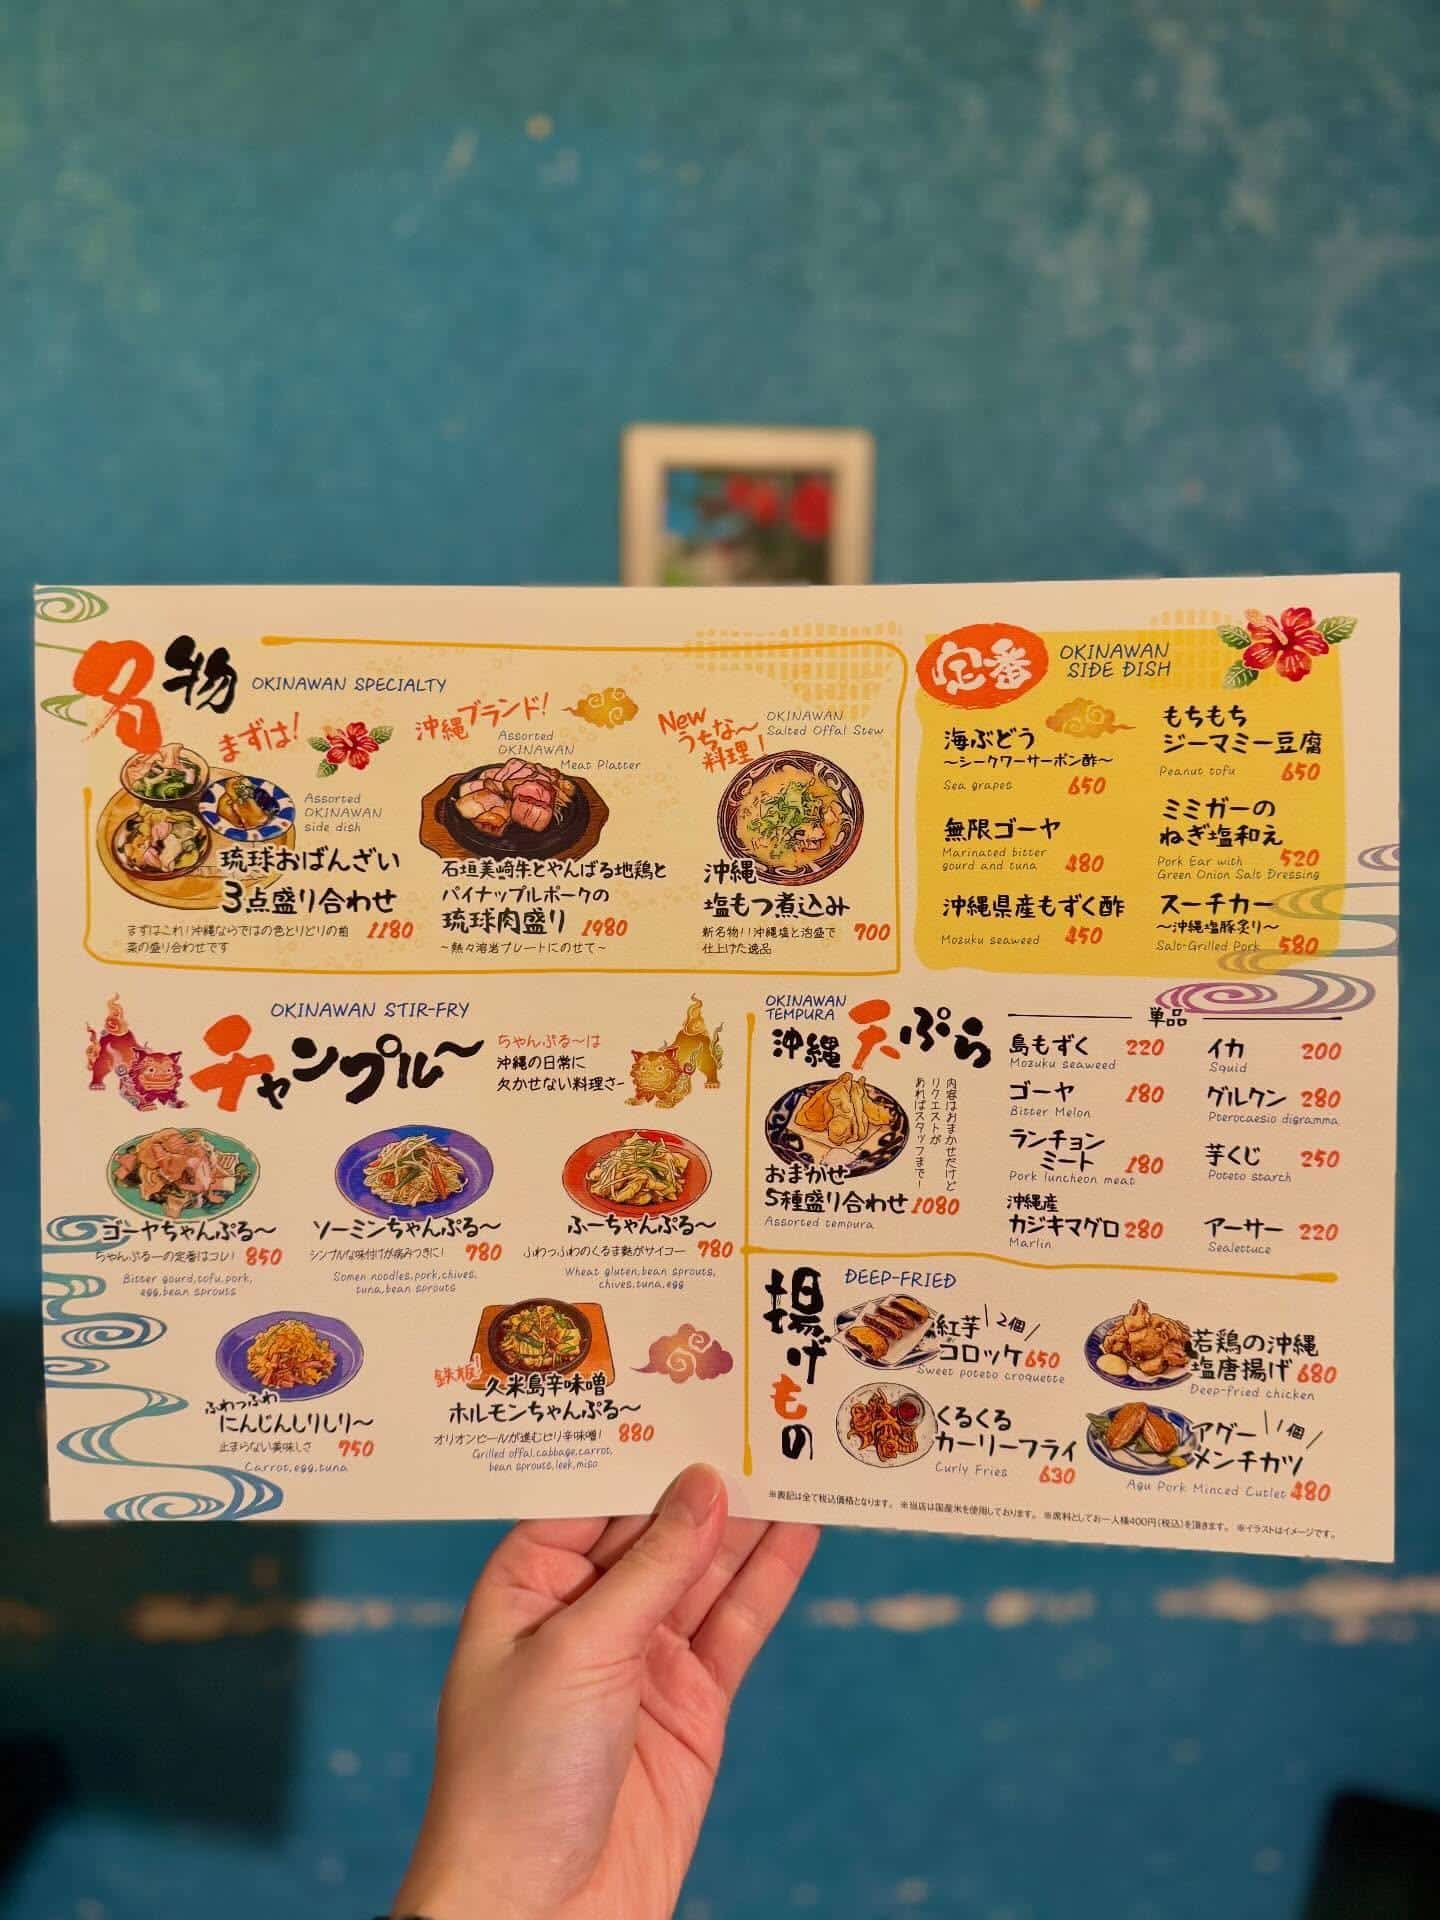 名物
OKINAWAN SPECIALTY
まずは!
Assorted
OKINAWAN
side dish
琉球おばんざい
3点盛り合わせ
まずはこれ!沖縄ならではの色とりどりの前
菜の盛り合わせです
1180
沖縄ブランド!
Assorted
OKINAWAN
Meat Platter
石垣美崎牛とやんばる地鶏と
パイナップルポークの
琉球肉盛り 1980
~熱々溶岩プレートにのせて~
New
うちな~
料理!
OKINAWAN
Salted Offal Stew
沖縄
塩もつ煮込み
新名物!!沖縄塩と泡盛で
仕上げた逸品
700
定番
OKINAWAN
SIDE DISH
海ぶどう
~シークワーサーポン酢~
Sea grapes 650
無限ゴーヤ
Marinated bitter
gourd and tuna 480
沖縄県産もずく酢
Mozuku seaweed 450
もちもち
ジーマミー豆腐
Peanut tofu 650
ミミガーの
ねぎ塩和え
Pork Ear with 520
Green Onion Salt Dressing
スーチカー
~沖縄塩豚炙り~
Salt-Grilled Pork 580
OKINAWAN STIR-FRY
チャンプル~
ちゃんぷる~は
沖縄の日常に
欠かせない料理さー
ゴーヤちゃんぷる~
ちゃんぷるーの定番はコレ! 850
Bitter gourd,tofu,pork,
egg,bean sprouts
ソーミンちゃんぷる~
シンプルな味付けが病みつきに! 780
Somen noodles,pork,chives,
tuna,bean sprouts
ふーちゃんぷる~
ふわっふわのくるま麩がサイコー 780
Wheat gluten,bean sprouts,
chives,tuna,egg
ふわっふわ
にんじんしりしり~
止まらない美味しさ 750
Carrot,egg,tuna
鉄板!
久米島辛味噌
ホルモンちゃんぷる~
オリオンビールが進むピリ辛味噌! 880
Grilled offal,cabbage,carrot,
bean sprouts,leek,miso
OKINAWAN
TEMPURA
沖縄天ぷら
内容はおまかせだけど
リクエストが
あればスタッフまで!
おまかせ
5種盛り合わせ 1080
Assorted tempura
単品
島もずく 220
Mozuku seaweed
ゴーヤ 180
Bitter Melon
ランチョン
ミート 180
Pork luncheon meat
沖縄産
カジキマグロ 280
Marlin
イカ 200
Squid
グルクン 280
Pterocaesio digramma
芋くじ 250
Poteto starch
アーサー 220
Sealettuce
揚げもの
DEEP-FRIED
紅芋 2個
コロッケ 650
Sweet poteto croquette
若鶏の沖縄
塩唐揚げ 680
Deep-fried chicken
くるくる
カーリーフライ
Curly Fries 630
アグー 1個
メンチカツ
Agu Pork Minced Cutlet 480
※表記は全て税込価格となります。 ※当店は国産米を使用しております。 ※席料としてお一人様400円(税込)を頂きます。 ※イラストはイメージです。